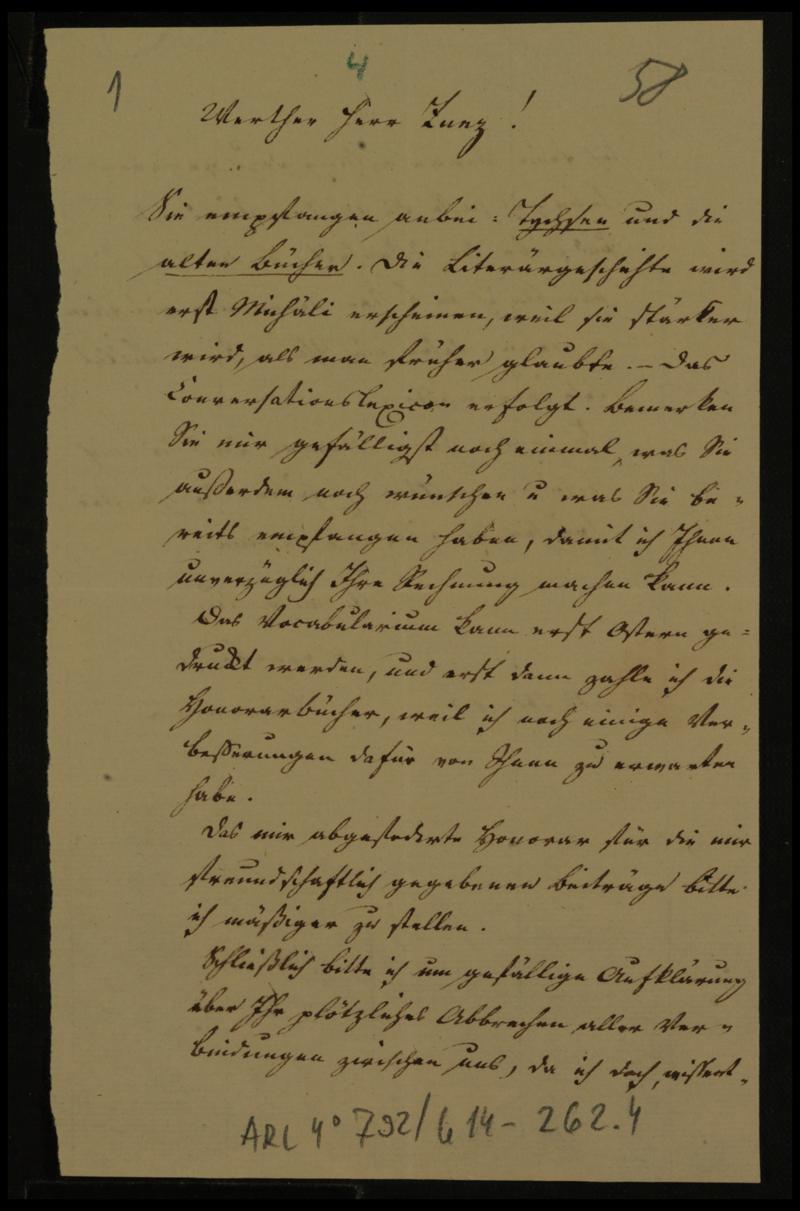 1 4 58
Werther Herr Zunz!
Sie empfangen anbei: Tychsen und die
alten Bücher. Die Literärgeschichte wird
erst Michäli erscheinen, weil sie stärker
wird, als man früher glaubte. – Das
Conversationslexicon erfolgt. Bemerken
Sie mir gefälligst noch einmal, was Sie
außerdem noch wünschen u was Sie be-
reits empfangen haben, damit ich Ihnen
unverzüglich Ihre Rechnung machen kann.
Das Vocabularium kann erst Ostern ge-
druckt werden, und erst dann zahle ich die
Honorarbücher, weil ich noch einige Ver-
besserungen dafür von Ihnen zu erwarten
habe.
Das mir abgeforderte Honorar für die mir
freundschaftlich gegebenen Beiträge bitte
ich mäßiger zu stellen.
Schließlich bitte ich um gefällige Aufklärung
über Ihr plötzliches Abbrechen aller Ver-
bindungen zwischen uns, da ich doch, wissent-
ARC 4° 792/G 14 - 262.4